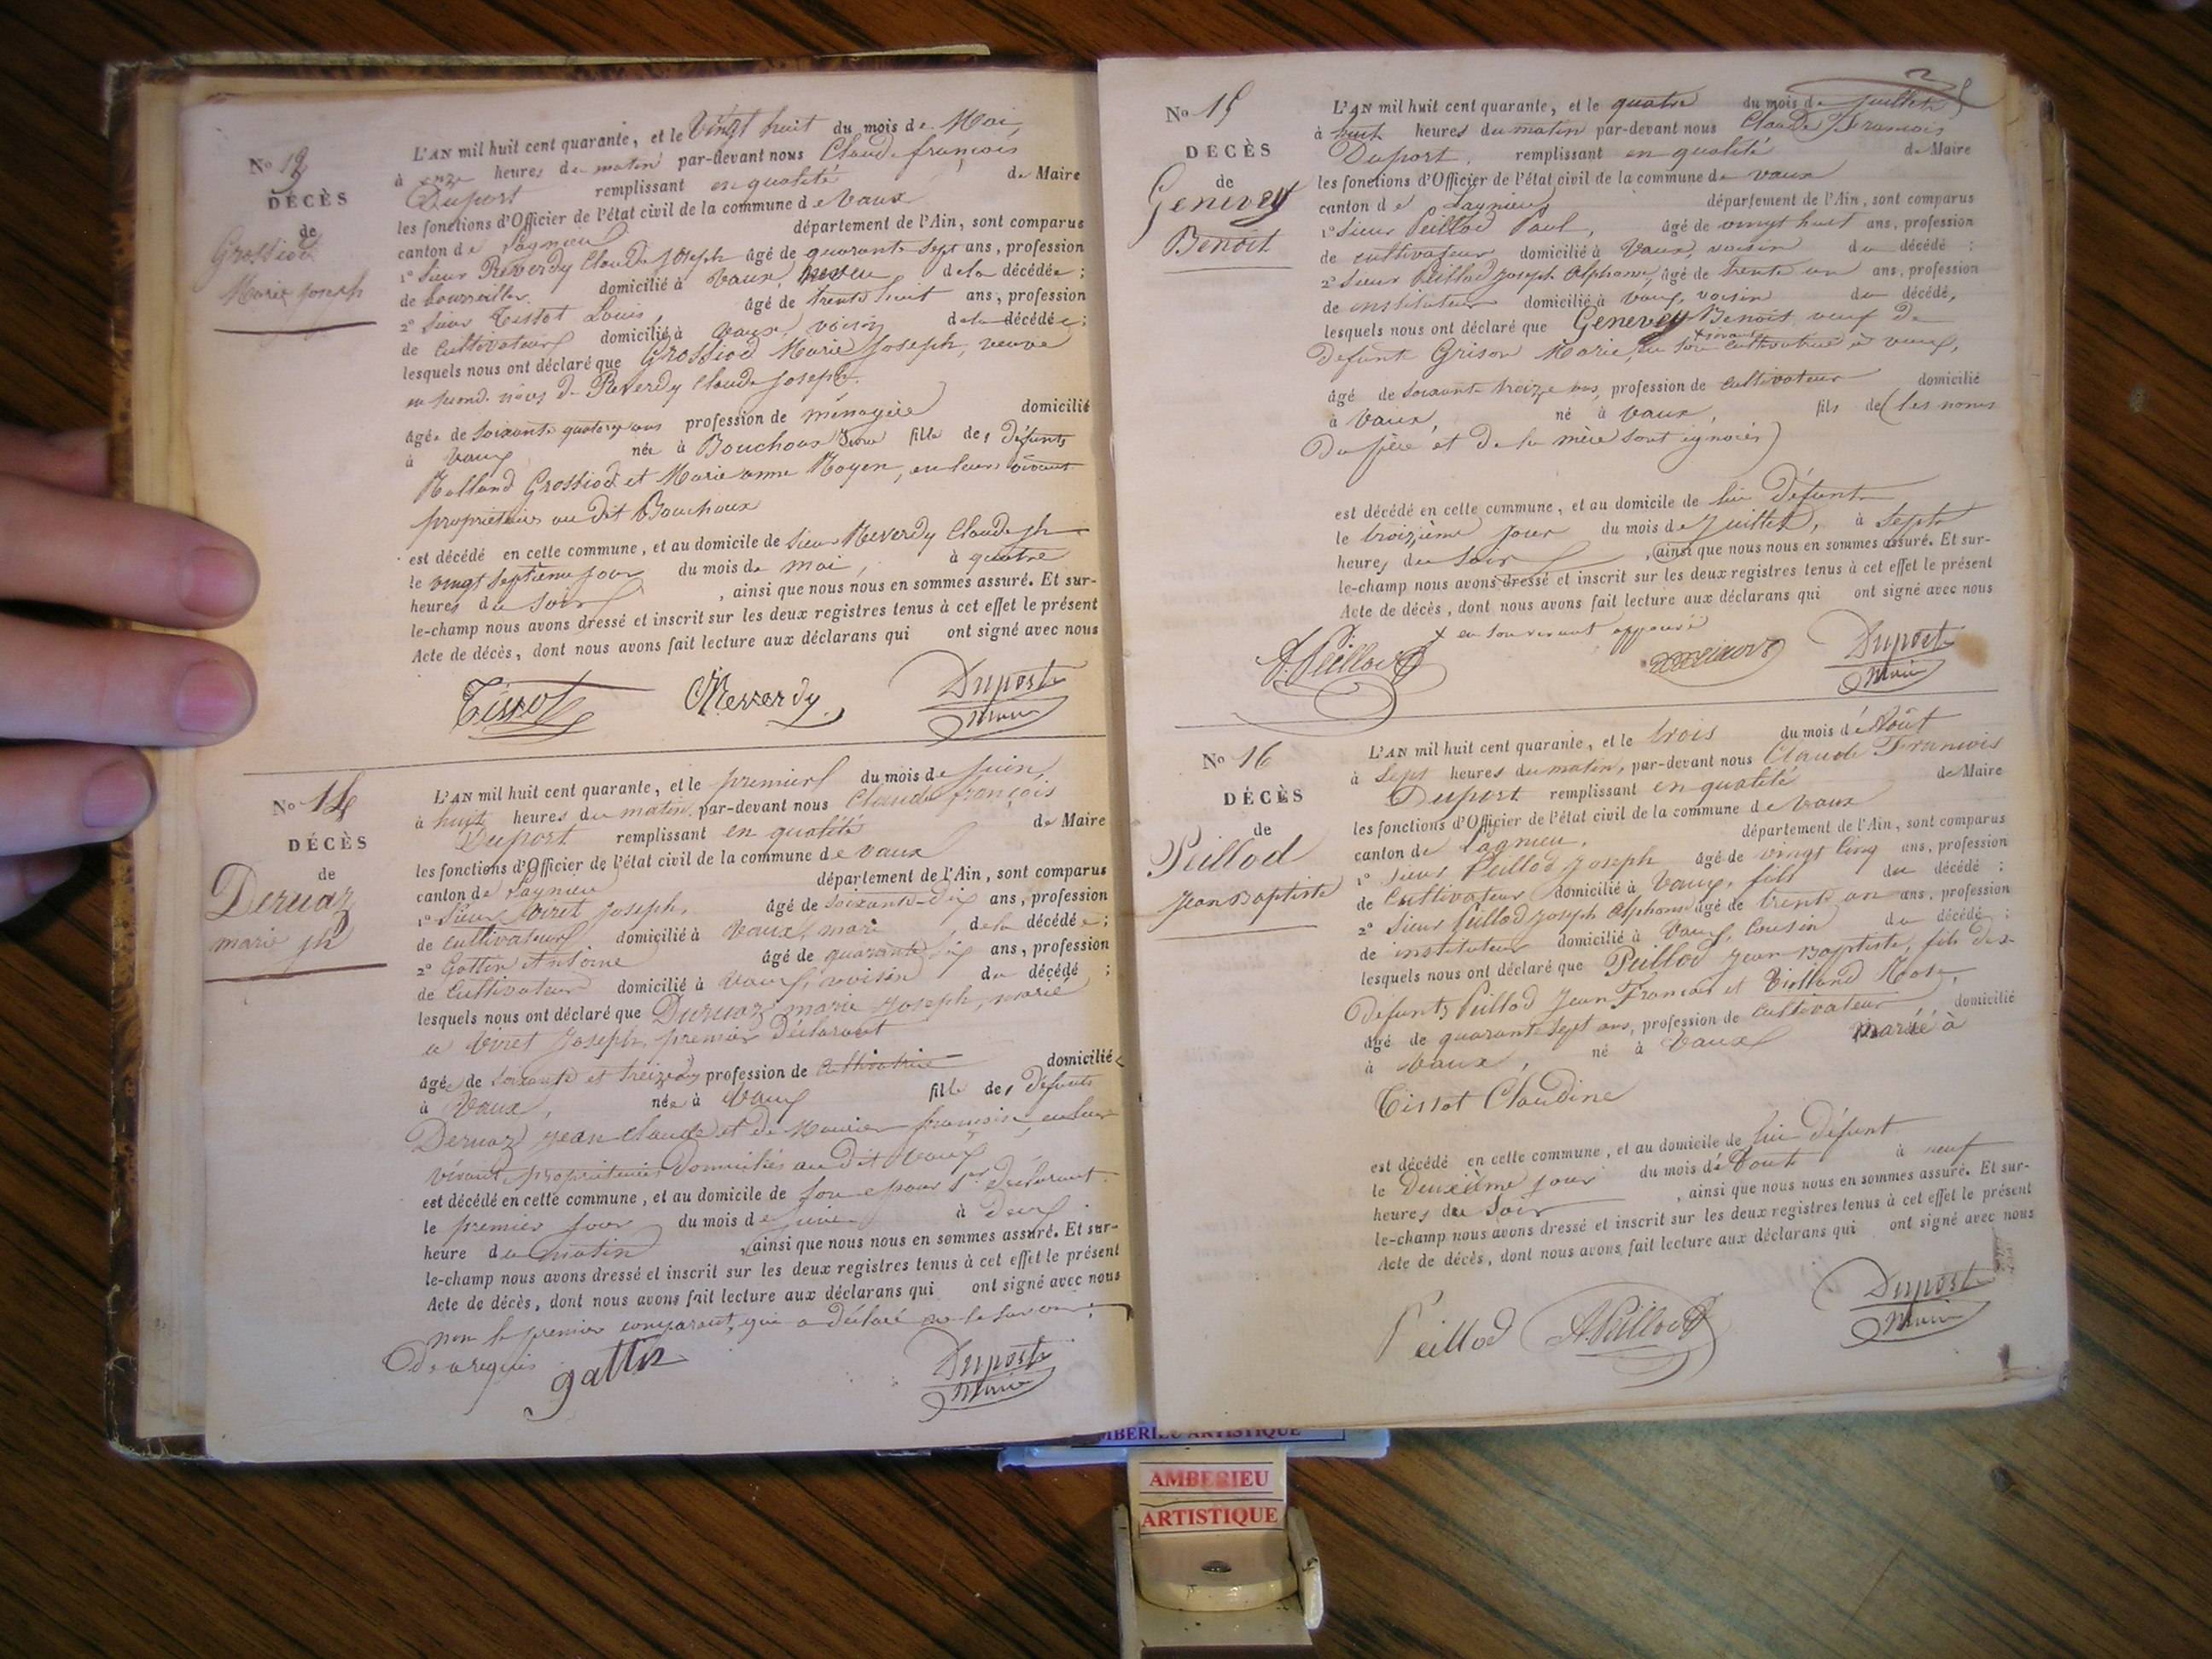 No 13
DÉCÈS
de
Grossiod
Marie Joseph
L'AN mil huit cent quarante, et le Vingt huit du mois de Mai,
à onze heures du matin par-devant nous Claude françois
Duport remplissant en qualité de Maire
les fonctions d'Officier de l'état civil de la commune de Vaux
canton de Lagnieu département de l'Ain, sont comparus
1° Sieur Reverdy Claude Joseph âgé de quarante sept ans, profession
de bourrellier domicilié à Vaux, de la décédée;
2° Sieur Tissot Louis, âgé de trente huit ans, profession
de Cultivateur domicilié à Vaux, voisin de la décédée;
lesquels nous ont déclaré que Grossiod Marie Joseph, veuve
en secondes nôces de Reverdy Claude Joseph,
âgée de soixante quatorze ans profession de ménagère domicilié
à Vaux née à Bouchoux Jura fille des défunts
Rolland Grossiod et Marie anne Moyen, en leurs vivant
propriétaires au dit Bouchoux
est décédé en cette commune, et au domicile de Sieur Reverdy Claude jh
le vingt septième jour du mois de mai, à quatre
heures du soir, ainsi que nous nous en sommes assuré. Et sur-
le-champ nous avons dressé et inscrit sur les deux registres tenus à cet effet le présent
Acte de décès, dont nous avons fait lecture aux déclarans qui ont signé avec nous
Tissot Reverdy Duport
Maire
No 14
DÉCÈS
de
Deruaz
marie jh
L'AN mil huit cent quarante, et le premier du mois de Juin,
à huit heures du matin, par-devant nous Claude françois
Duport remplissant en qualité de Maire
les fonctions d'Officier de l'état civil de la commune de Vaux
canton de Lagnieu département de l'Ain, sont comparus
1° Sieur Viret Joseph, âgé de soixante-dix ans, profession
de cultivateur domicilié à Vaux, mari, de la décédée;
2° Gottin Antoine âgé de quarante six ans, profession
de Cultivateur domicilié à Vaux, voisin du décédé;
lesquels nous ont déclaré que Deruaz marie Joseph, mariée
a Viret Joseph, premier Déclarant
âgée de soixante et treize ans profession de cultivatrice domicilié
à Vaux, née à Vaux fille des défunts
Deruaz jean claude et de françoise, en leur
vivant propriétaires Domiciliés au dit Vaux
est décédé en cette commune, et au domicile de son epoux 1er déclarant
le premier jour du mois de juin à deux
heure du matin, ainsi que nous nous en sommes assuré. Et sur-
le-champ nous avons dressé et inscrit sur les deux registres tenus à cet effet le présent
Acte de décès, dont nous avons fait lecture aux déclarans qui ont signé avec nous
non le premier comparant, qui a déclaré ne le savoir
De ce requis gattin Duport
Maire
No 15
DÉCÈS
de
Genevey
Benoit
L'AN mil huit cent quarante, et le quatre du mois de juillet
à huit heures du matin par-devant nous Claude François
Duport, remplissant en qualité de Maire
les fonctions d'Officier de l'état civil de la commune de Vaux
canton de Lagnieu département de l'Ain, sont comparus
1° Sieur Peillod Paul, âgé de vingt huit ans, profession
de cultivateur domicilié à Vaux, voisin du décédé;
2° Sieur Peillod Joseph Alphonse, âgé de trente un ans, profession
de instituteur domicilié à Vaux, voisin du décédé,
lesquels nous ont déclaré que Genevey Benoit veuf de
Defunte Grison Marie, en son cultivatrice à vaux,
âgé de soixante treize ans, profession de cultivateur domicilié
à Vaux, né à Vaux, fils de (les noms
Du père et de la mère sont ignorés)
est décédé en cette commune, et au domicile de lui défunt
le troizième jour du mois de juillet, à sept
heures du soir, ainsi que nous nous en sommes assuré. Et sur-
le-champ nous avons dressé et inscrit sur les deux registres tenus à cet effet le présent
Acte de décès, dont nous avons fait lecture aux déclarans qui ont signé avec nous
x en son vivant approuvé
A. Peillod Duport
Maire
No 16
DÉCÈS
de
Peillod
Jean Baptiste
L'AN mil huit cent quarante, et le trois du mois d'Août
à sept heures du matin, par-devant nous Claude François
Duport remplissant en qualité de Maire
les fonctions d'Officier de l'état civil de la commune de Vaux
canton de Lagnieu, département de l'Ain, sont comparus
1° Sieur Peillod Joseph âgé de vingt cinq ans, profession
de Cultivateur domicilié à Vaux, fils du décédé;
2° Sieur Peillod Joseph Alphonse âgé de trente un ans, profession
de instituteur domicilié à Vaux, Cousin du décédé;
lesquels nous ont déclaré que Peillod Jean Baptiste, fils des
Defunts Peillod Jean François et Volland Rose,
âgé de quarante sept ans, profession de cultivateur domicilié
à Vaux, né à Vaux marié à
Tissot Claudine
est décédé en cette commune, et au domicile de lui défunt
le Deuxième jour du mois d'Août à neuf
heures du soir, ainsi que nous nous en sommes assuré. Et sur-
le-champ nous avons dressé et inscrit sur les deux registres tenus à cet effet le présent
Acte de décès, dont nous avons fait lecture aux déclarans qui ont signé avec nous
Peillod A. Peillod Duport
Maire
AMBERIEU ARTISTIQUE
AMBERIEU
ARTISTIQUE